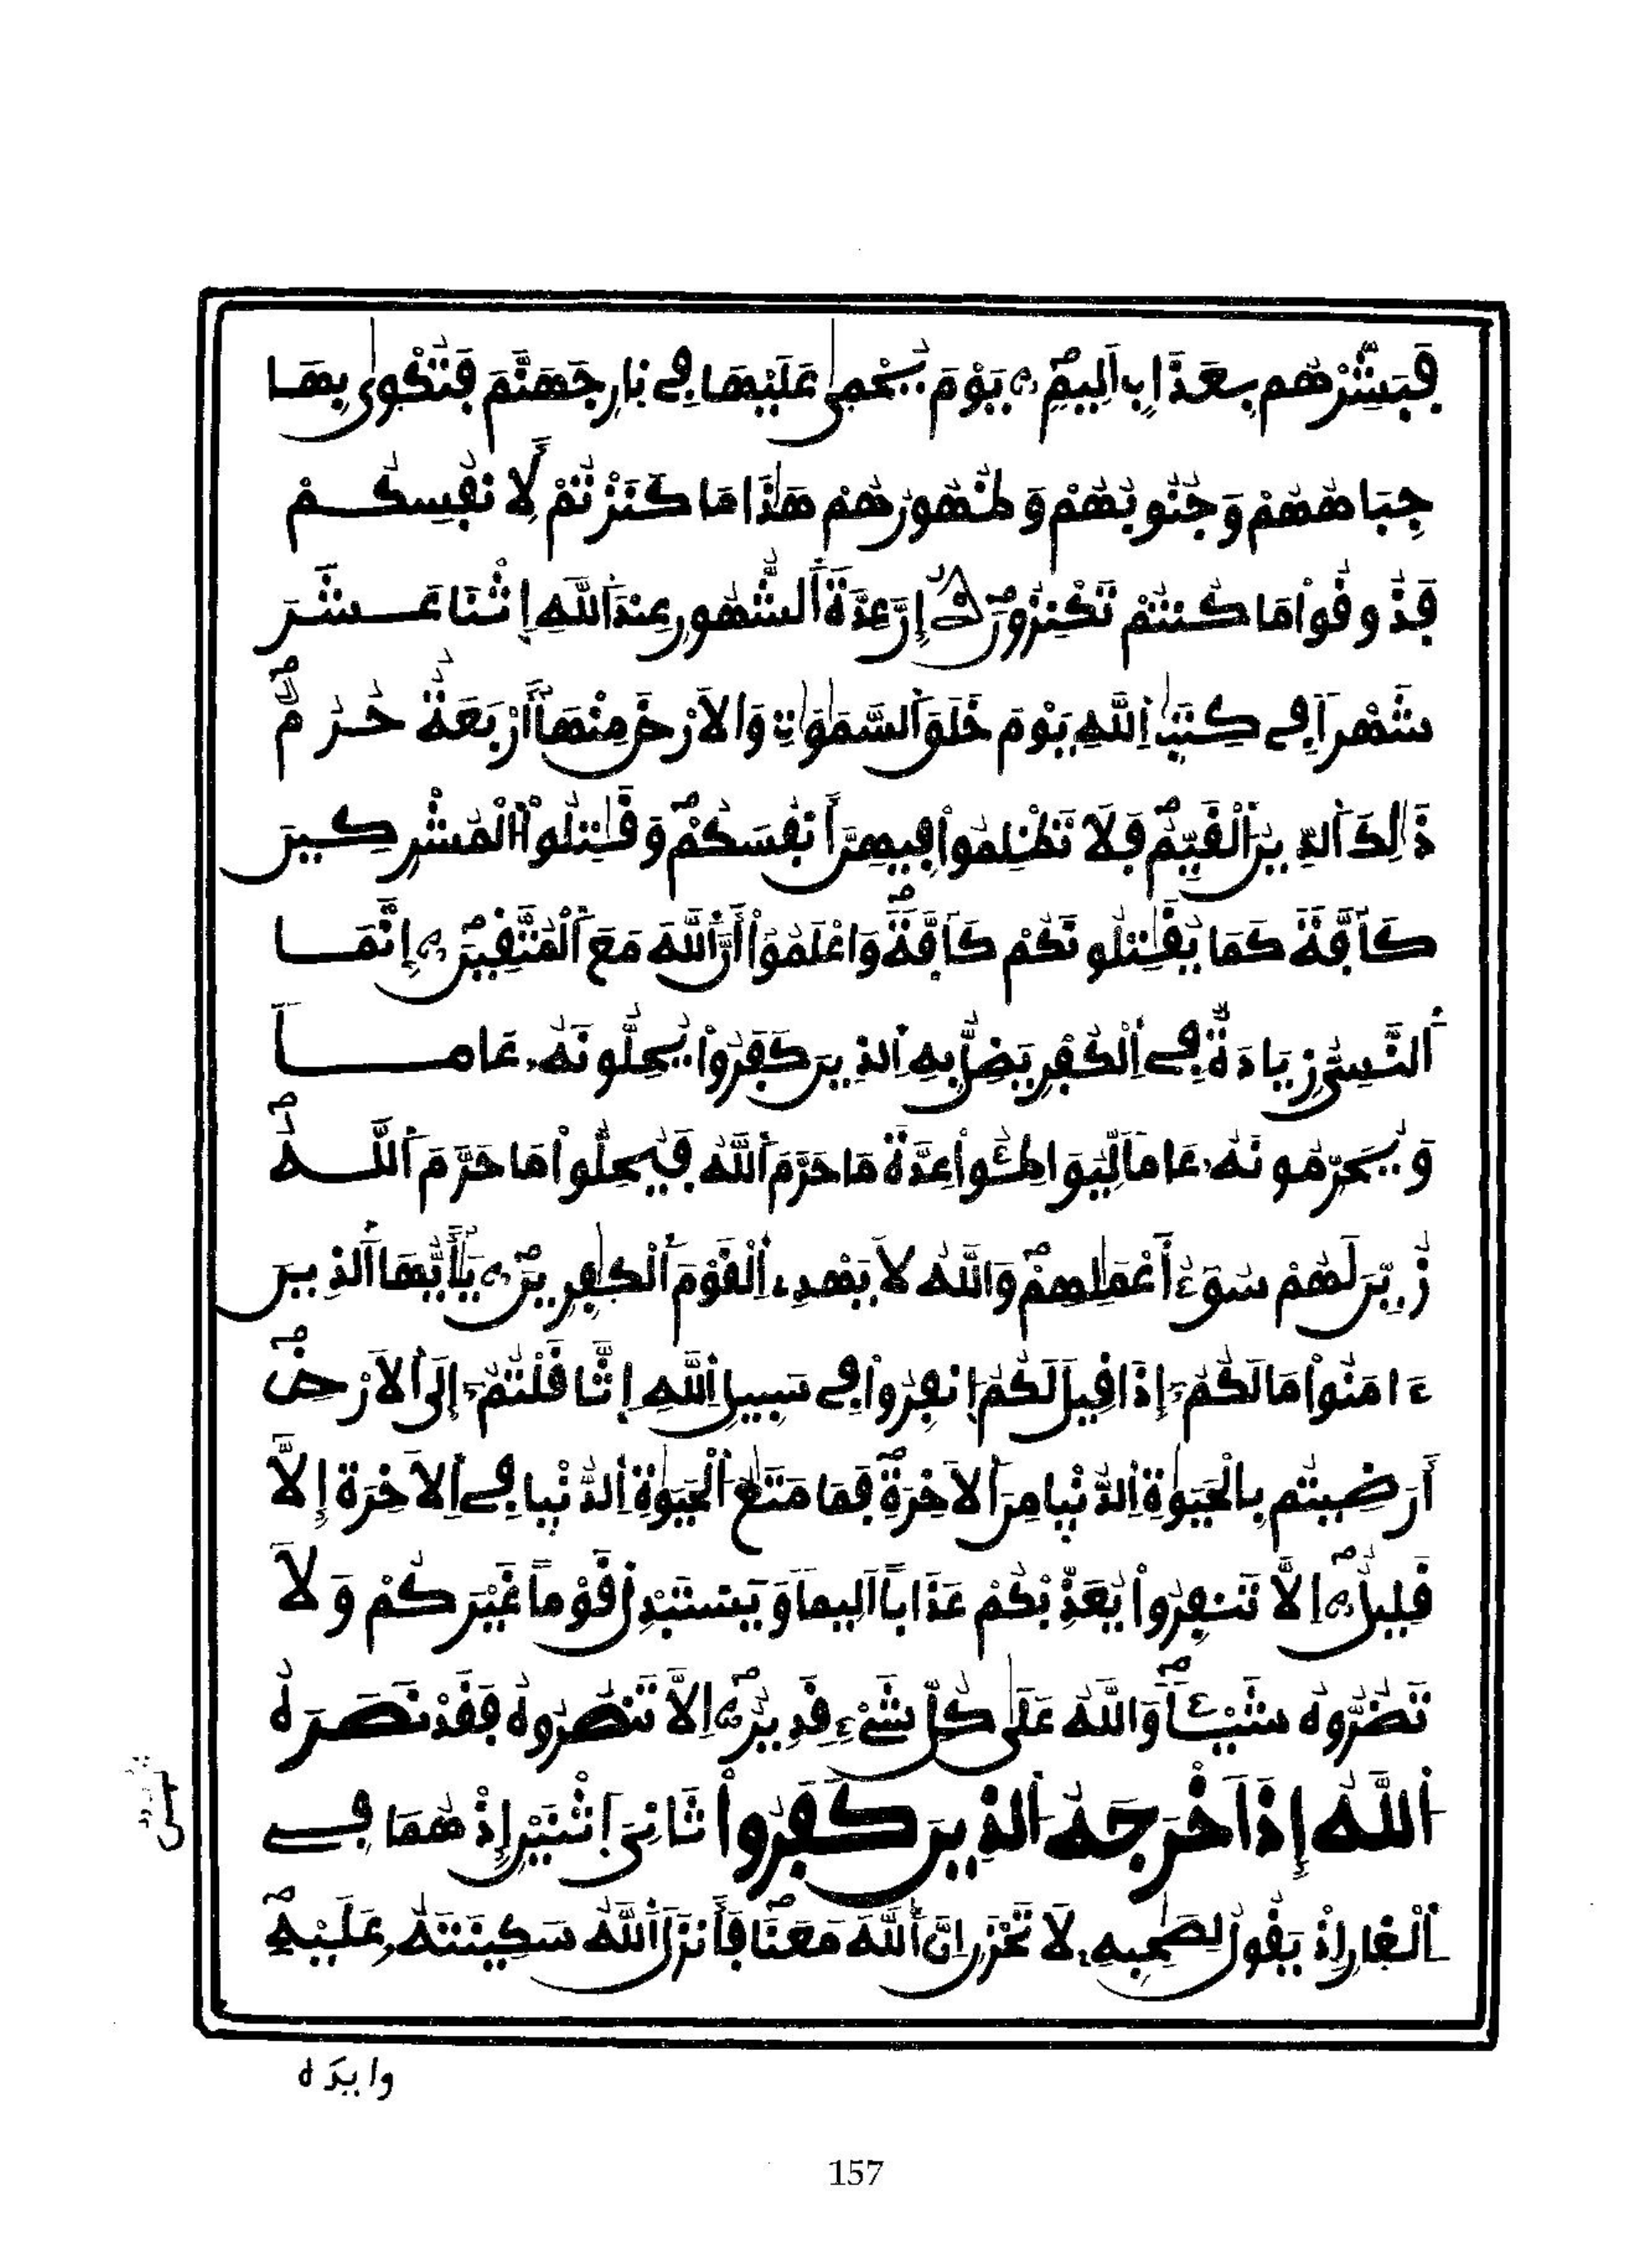 فَبَشِّرْهُم بِعَذَابٍ اَلِيمٍ يَوْمَ يُحْمىٰ عَلَيْهَا فِے نَارِ جَهَنَّمَ فَتُكْوىٰ بِهَا
جِبَاهُهُمْ وَجُنُوبُهُمْ وَظُهُورُهُمْ هَٰذَا مَا كَنَزْتُمْ لَأَنفُسِكُمْ
فَذُوقُواْ مَا كُنتُمْ تَكْنِزُونَ إِنَّ عِدَّةَ اَ۬لشُّهُورِ عِندَ اَ۬للَّهِ اِ۪ثْنَا عَشَرَ
شَهْراً فِے كِتَٰبِ اِ۬للَّهِ يَوْمَ خَلَقَ اَ۬لسَّمَٰوَٰتِ وَالَارْضَ مِنْهَآ أَرْبَعَةٌ حُرُمٞ
ذَٰلِكَ اَ۬لدِّينُ اُ۬لْقَيِّمُ فَلَا تَظْلِمُواْ فِيهِنَّ أَنفُسَكُمْ وَقَٰتِلُواْ اُ۬لْمُشْرِكِينَ
كَآفَّةٗ كَمَا يُقَٰتِلُونَكُمْ كَآفَّةٗ وَاعْلَمُوٓاْ أَنَّ اَ۬للَّهَ مَعَ اَ۬لْمُتَّقِينَ إِنَّمَا
اَ۬لنَّسِيُّ زِيَادَةٞ فِے اِ۬لْكُفْرِ يَضِلُّ بِهِ اِ۬لذِينَ كَفَرُواْ يُحِلُّونَهُۥ عَاماٗ
وَيُحَرِّمُونَهُۥ عَاماٗ لِّيُوَاطِـُٔواْ عِدَّةَ مَا حَرَّمَ اَ۬للَّهُ فَيُحِلُّواْ مَا حَرَّمَ اَ۬للَّهُ
زُيِّنَ لَهُمْ سُوٓءُ أَعْمَٰلِهِمْ وَاللَّهُ لَا يَهْدِے اِ۬لْقَوْمَ اَ۬لْكَٰفِرِينَ يَٰٓأَيُّهَا اَ۬لذِينَ
ءَامَنُواْ مَا لَكُمُۥٓ إِذَا قِيلَ لَكُمُ اُ۪نفِرُواْ فِے سَبِيلِ اِ۬للَّهِ اِ۪ثَّاقَلْتُمُۥٓ إِلَى اَ۬لَارْضِ
أَرَضِيتُم بِالْحَيَوٰةِ اِ۬لدُّنْيَا مِنَ اَ۬لَاخِرَةِ فَمَا مَتَٰعُ اُ۬لْحَيَوٰةِ اِ۬لدُّنْيَا فِے اِ۬لَاخِرَةِ إِلَّا
قَلِيلٌ اِلَّا تَنفِرُواْ يُعَذِّبْكُمْ عَذَاباً اَلِيماٗ وَيَسْتَبْدِلْ قَوْماً غَيْرَكُمْ وَلَا
تَضُرُّوهُ شَيْـٔاٗ وَاللَّهُ عَلَىٰ كُلِّ شَےْءٖ قَدِيرٌ اِلَّا تَنصُرُوهُ فَقَدْ نَصَرَهُ
اُ۬للَّهُ إِذَ اَخْرَجَهُ اُ۬لذِينَ كَفَرُواْ ثَانِيَ اَ۪ثْنَيْنِ إِذْ هُمَا فِے
اِ۬لْغَارِ إِذْ يَقُولُ لِصَٰحِبِهِۦ لَا تَحْزَنِ اِنَّ اَ۬للَّهَ مَعَنَا فَأَنزَلَ اَ۬للَّهُ سَكِينَتَهُۥ عَلَيْهِ
وايدَه
157